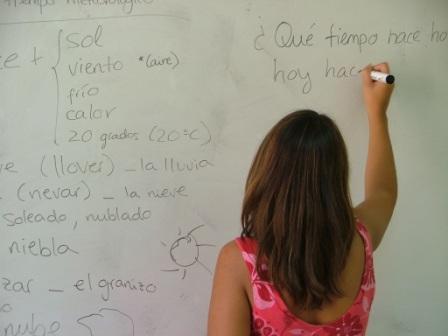 tiempo meteorológico
+ { sol
viento *(aire)
frío
calor
20 grados (20ºC)
(llover) _ la lluvia
(nevar) _ la nieve
soleado, nublado
niebla
_ el granizo
nube
¿Qué tiempo hace
hoy hac